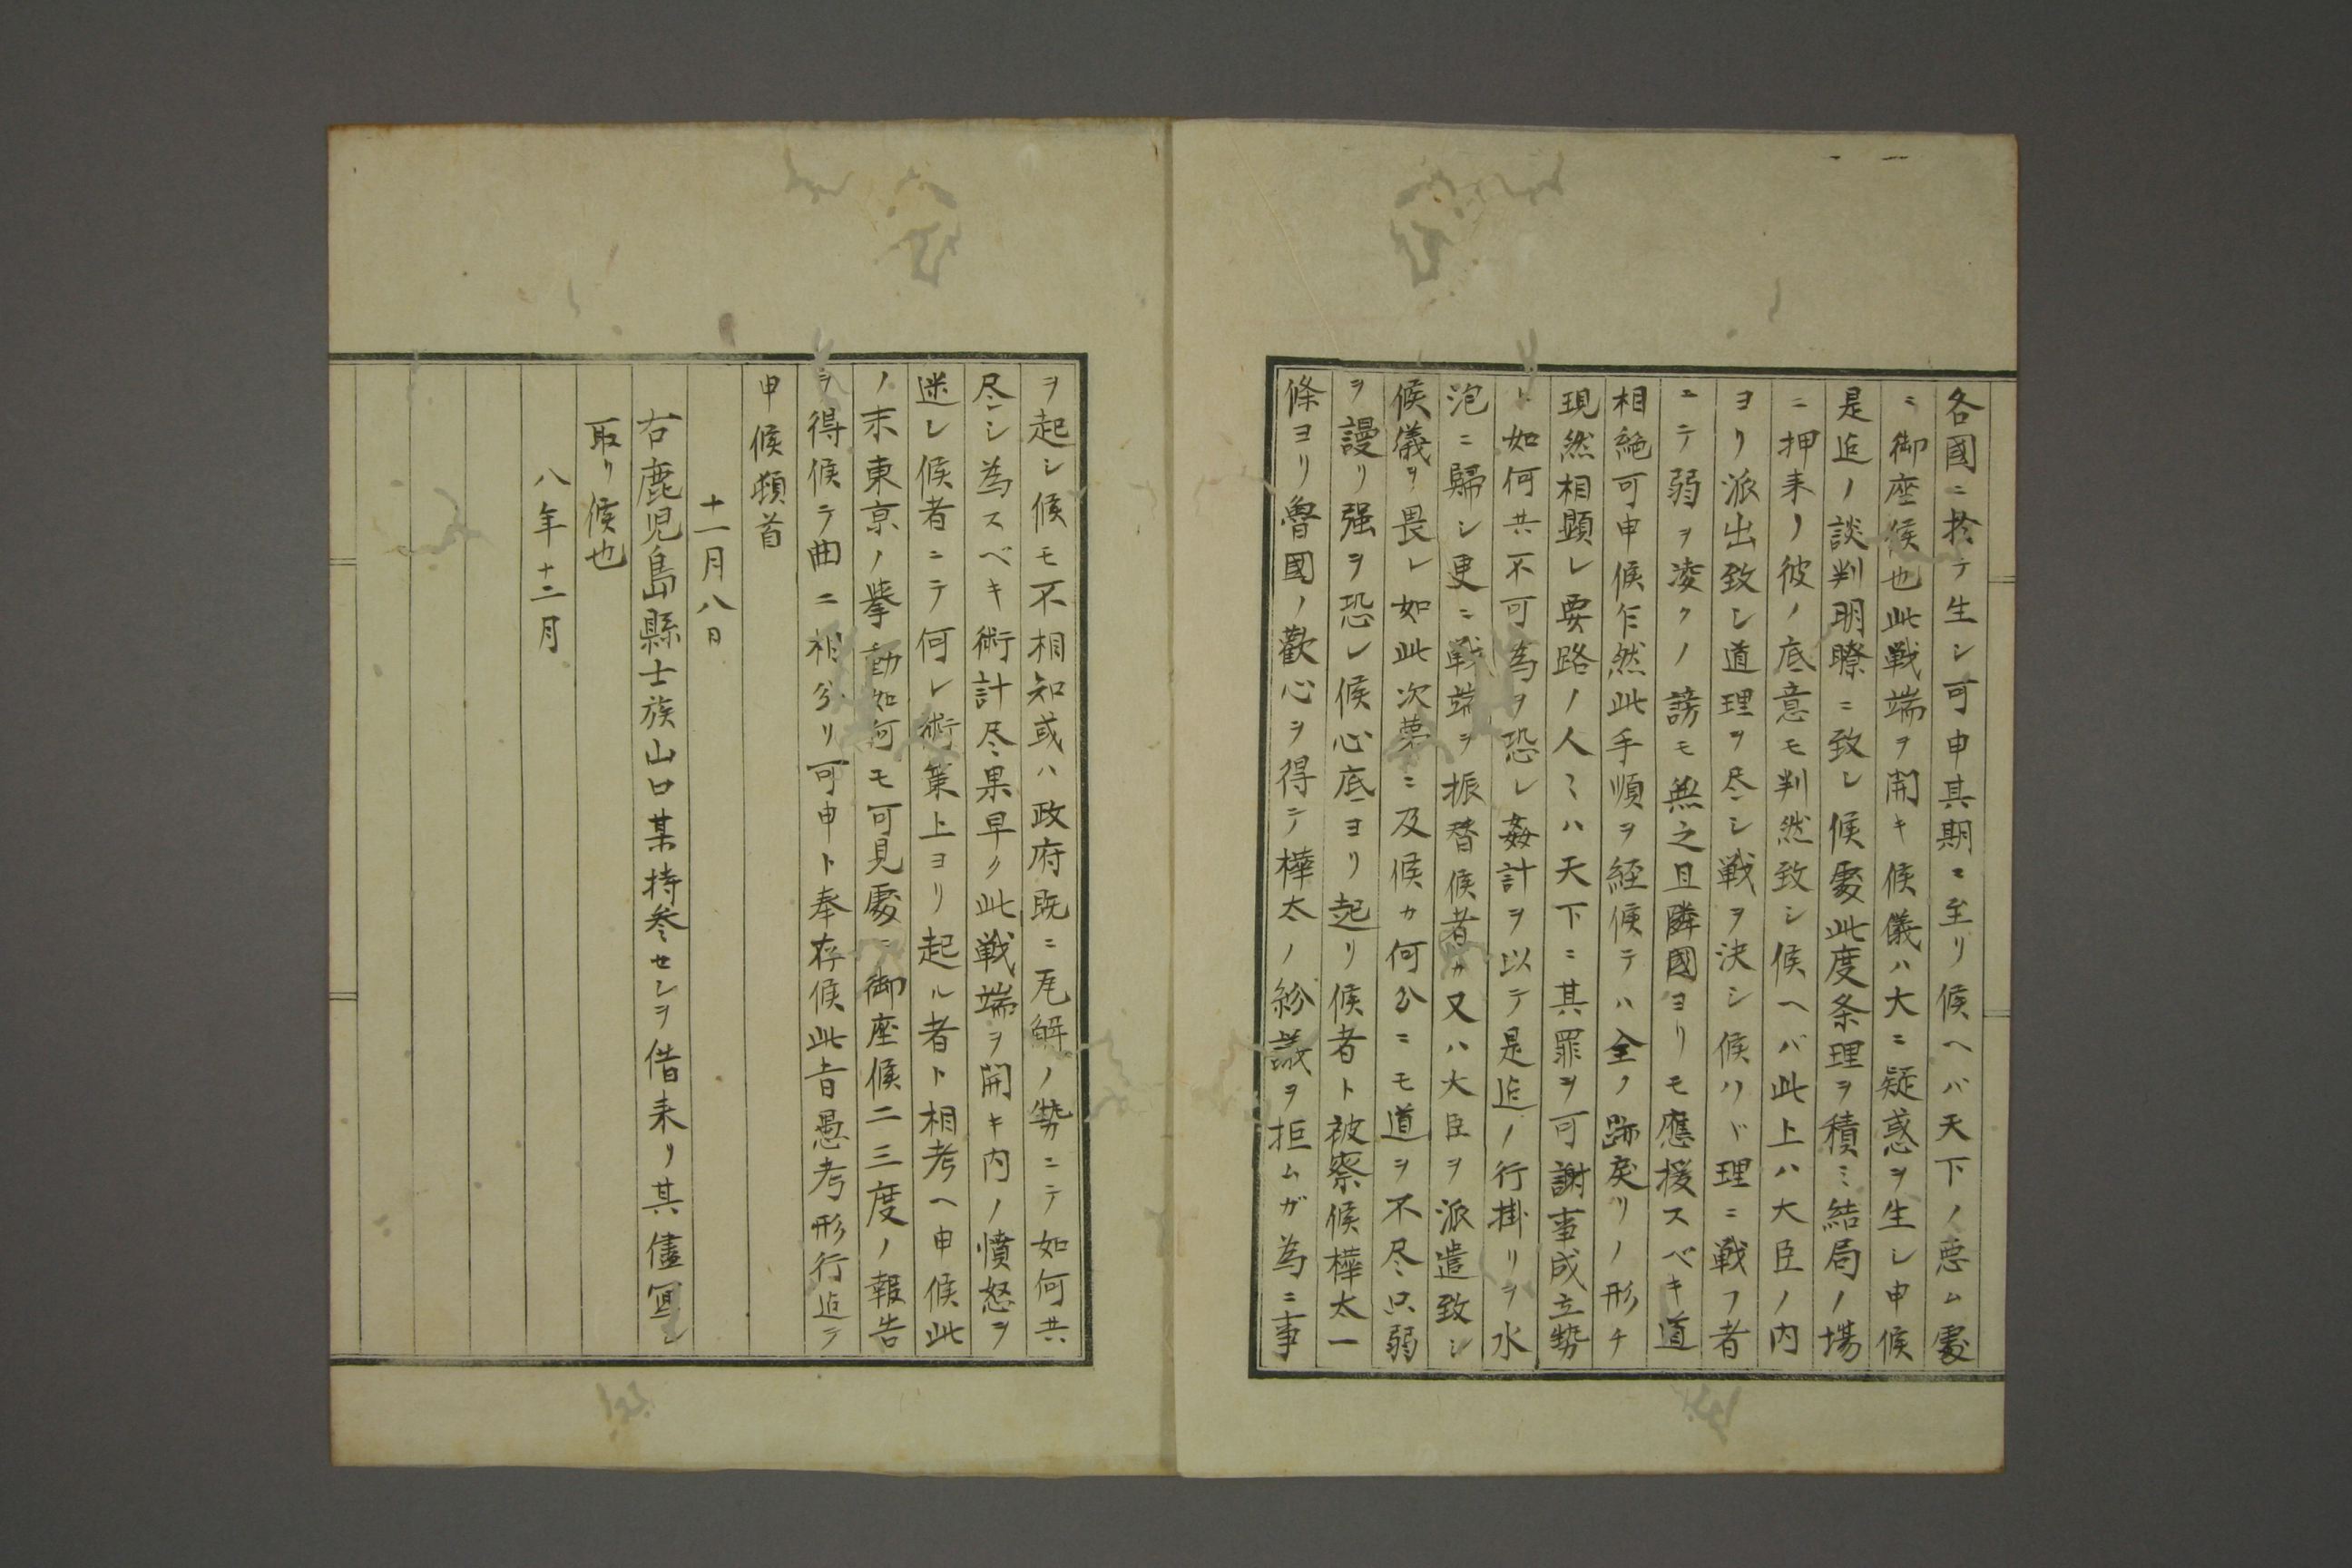 各國ニ於テ生シ可申其期ニ至リ候ヘバ天下ノ悪ム處
ニ御座候也此戦端ヲ開キ候儀ハ大ニ疑惑ヲ生シ申候
是迄ノ談判明瞭ニ致シ候處此度条理ヲ積ミ結局ノ場
ニ押来リ彼ノ底意モ判然致シ候ヘバ此上ハ大臣ノ内
ヨリ派出致シ道理ヲ尽シ戦ヲ決シ候ハヾ理ニ戦フ者
ニテ弱ヲ凌クノ謗モ無之且隣國ヨリモ應援スベキ道
相絶可申候乍然此手順ヲ経候テハ全ク跡戻リノ形チ
現然相顕レ要路ノ人ミハ天下ニ其罪ヲ可謝事成立勢
ヒ如何共不可為ヲ恐レ姦計ヲ以テ是迄ノ行掛リヲ水
泡ニ歸シ更ニ戦端ヲ振替候者カ又ハ大臣ヲ派遣致シ
候儀ヲ畏レ如此次第ニ及候カ何分ニモ道ヲ不尽只弱
ヲ謾リ强ヲ恐レ候心底ヨリ起リ候者ト被察候樺太一
條ヨリ魯國ノ歡心ヲ得テ樺太ノ紛議ヲ拒ムガ為ニ事
ヲ起シ候モ不相知或ハ政府既ニ瓦解ノ勢ニテ如何共
尽シ為スベキ術計尽果早ク此戦端ヲ開キ内ノ憤怒ヲ
迷シ候者ニテ何レ術策上ヨリ起ル者ト相考ヘ申候此
ノ末東京ノ挙動如何モ可見處ニ御座候二三度ノ報告
ヲ得候テ曲ニ相分リ可申ト奉存候此旨愚考形行迄テ
申候頓首
十一月八日
右鹿児島縣士族山口某持参セシヲ借来リ其儘冩シ
取リ候也
八年十二月